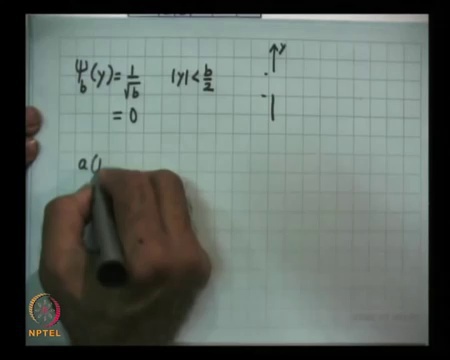 ψ_b(y) = 1/√b |y| < b/2
= 0
a(
y
NPTEL